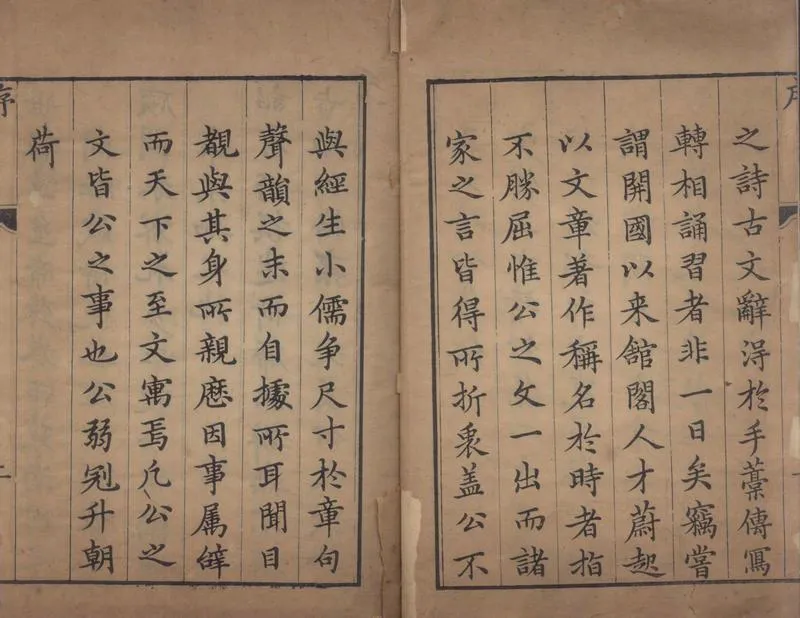 之詩古文辭淂於手藁傳寫
轉相誦習者非一日矣竊嘗
謂開國以来舘閣人才蔚起
以文章著作稱名於時者指
不勝屈惟公之文一出而諸
家之言皆得所折衷盖公不
與經生小儒争尺寸於章句
聲韻之末而自據所耳聞目
覩與其身所親厯因事属辭
而天下之至文寓焉凡公之
文皆公之事也公弱冠升朝
荷
序